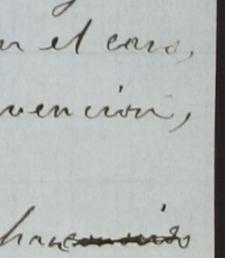 n el caso,
vencion,